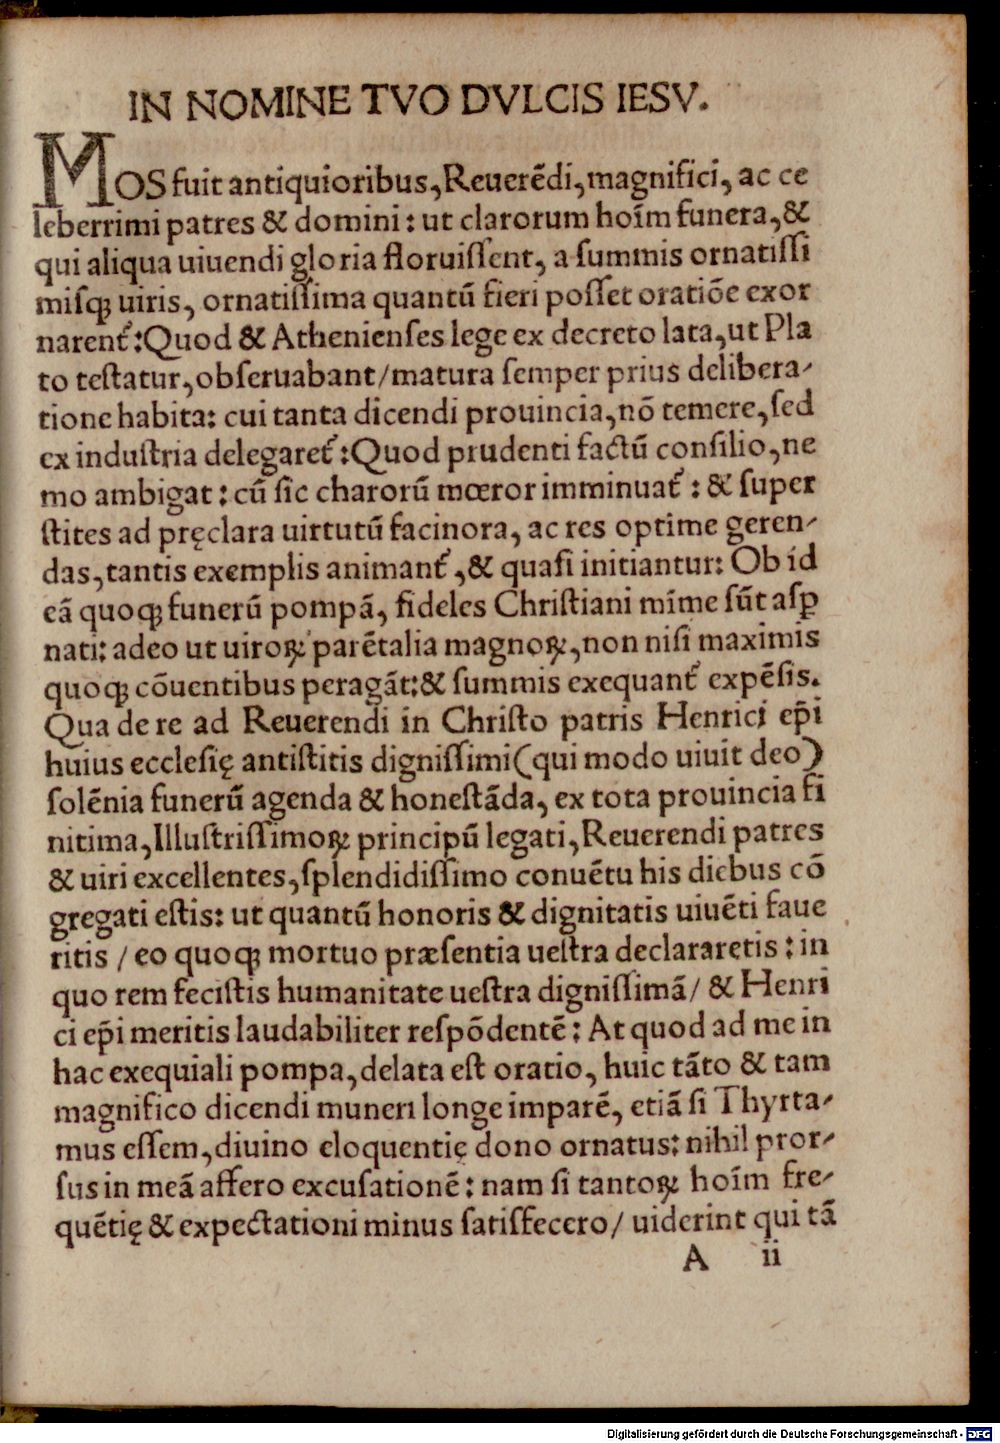 IN NOMINE TVO DVLCIS IESV.
MOS fuit antiquioribus, Reuerēdi, magnifici, ac ce
leberrimi patres & domini: ut clarorum hoīm funera, &
qui aliqua uiuendi gloria floruiſſent, a ſummis ornatiſſi
miſqꝫ uiris, ornatiſſima quantū fieri poſſet oratiōe exor
narent᷑: Quod & Athenienſes lege ex decreto lata, ut Pla
to teſtatur, obſeruabant/ matura ſemper prius delibera⸗
tione habita: cui tanta dicendi prouincia, nō temere, ſed
ex induſtria delegaret᷑: Quod prudenti factū conſilio, ne
mo ambigat: cū ſic charorū mœror imminuat᷑: & ſuper
ſtites ad pręclara uirtutū facinora, ac res optime geren⸗
das, tantis exemplis animant᷑, & quaſi initiantur: Ob id
eā quoqꝫ funerū pompā, fideles Chriſtiani mīme ſūt aſꝑ
nati: adeo ut uiroꝝ parētalia magnoꝝ, non niſi maximis
quoqꝫ cōuentibus peragāt: & ſummis exequant᷑ expēſis.
Qua de re ad Reuerendi in Chriſto patris Henrici ep̄i
huius eccleſię antiſtitis digniſſimi (qui modo uiuit deo)
ſolēnia funerū agenda & honeſtāda, ex tota prouincia fi
nitima, Illuſtriſſimoꝝ principū legati, Reuerendi patres
& uiri excellentes, ſplendidiſſimo conuētu his diebus cō
gregati eſtis: ut quantū honoris & dignitatis uiuēti faue
ritis / eo quoqꝫ mortuo præſentia ueſtra declararetis: in
quo rem feciſtis humanitate ueſtra digniſſimā/ & Henri
ci ep̄i meritis laudabiliter reſpōdentē: At quod ad me in
hac exequiali pompa, delata eſt oratio, huic tāto & tam
magnifico dicendi muneri longe imparē, etiā ſi Thyrta⸗
mus eſſem, diuino eloquentię dono ornatus: nihil pror⸗
ſus in meā affero excuſationē: nam ſi tantoꝝ hoīm fre⸗
quētię & expectationi minus ſatiſfecero/ uiderint qui tā
A ii
Digitalisierung gefördert durch die Deutsche Forschungsgemeinschaft - DFG